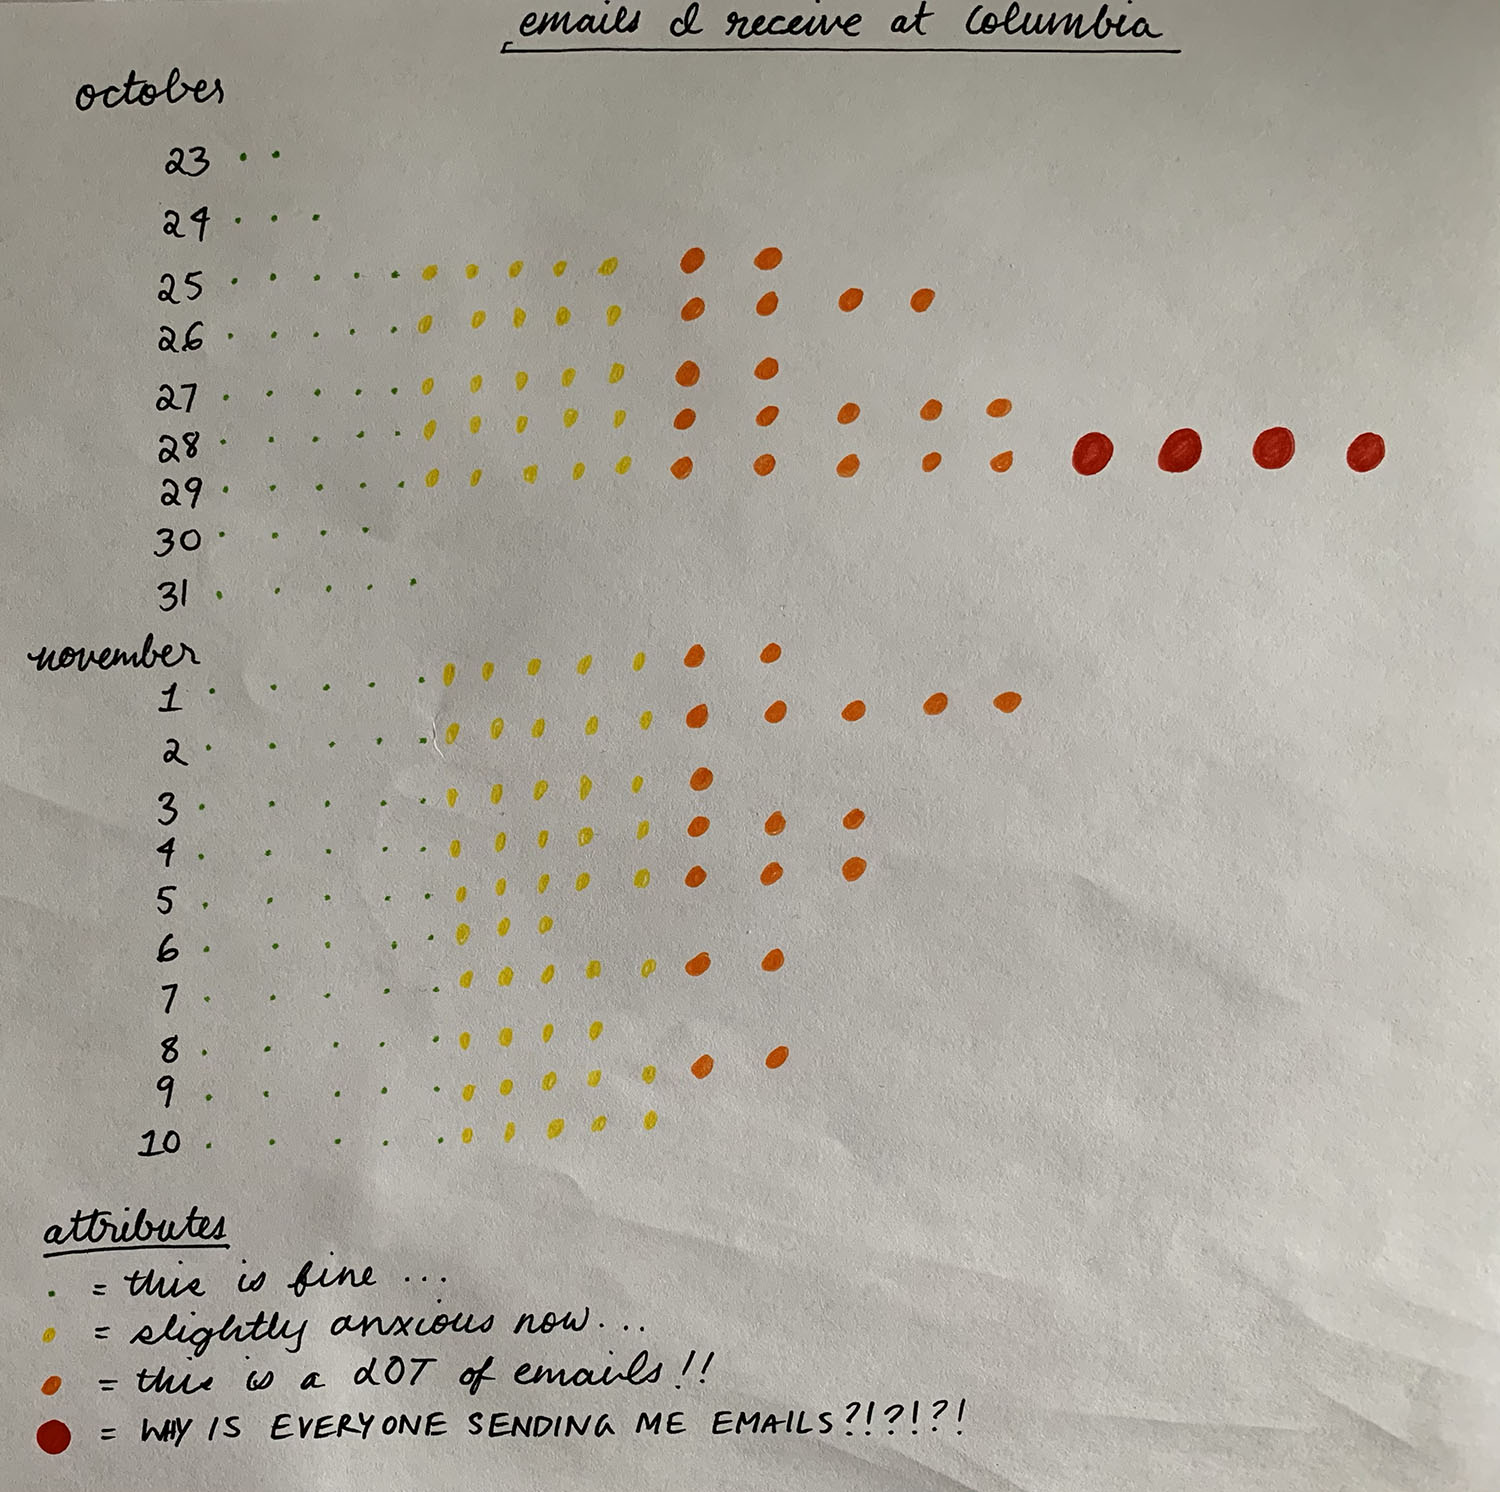 emails I receive at Columbia
october
23
24
25
26
27
28
29
30
31
november
1
2
3
4
5
6
7
8
9
10
attributes
= this is fine ...
= slightly anxious now...
= this is a LOT of emails!!
= WHY IS EVERYONE SENDING ME EMAILS?!?!?!